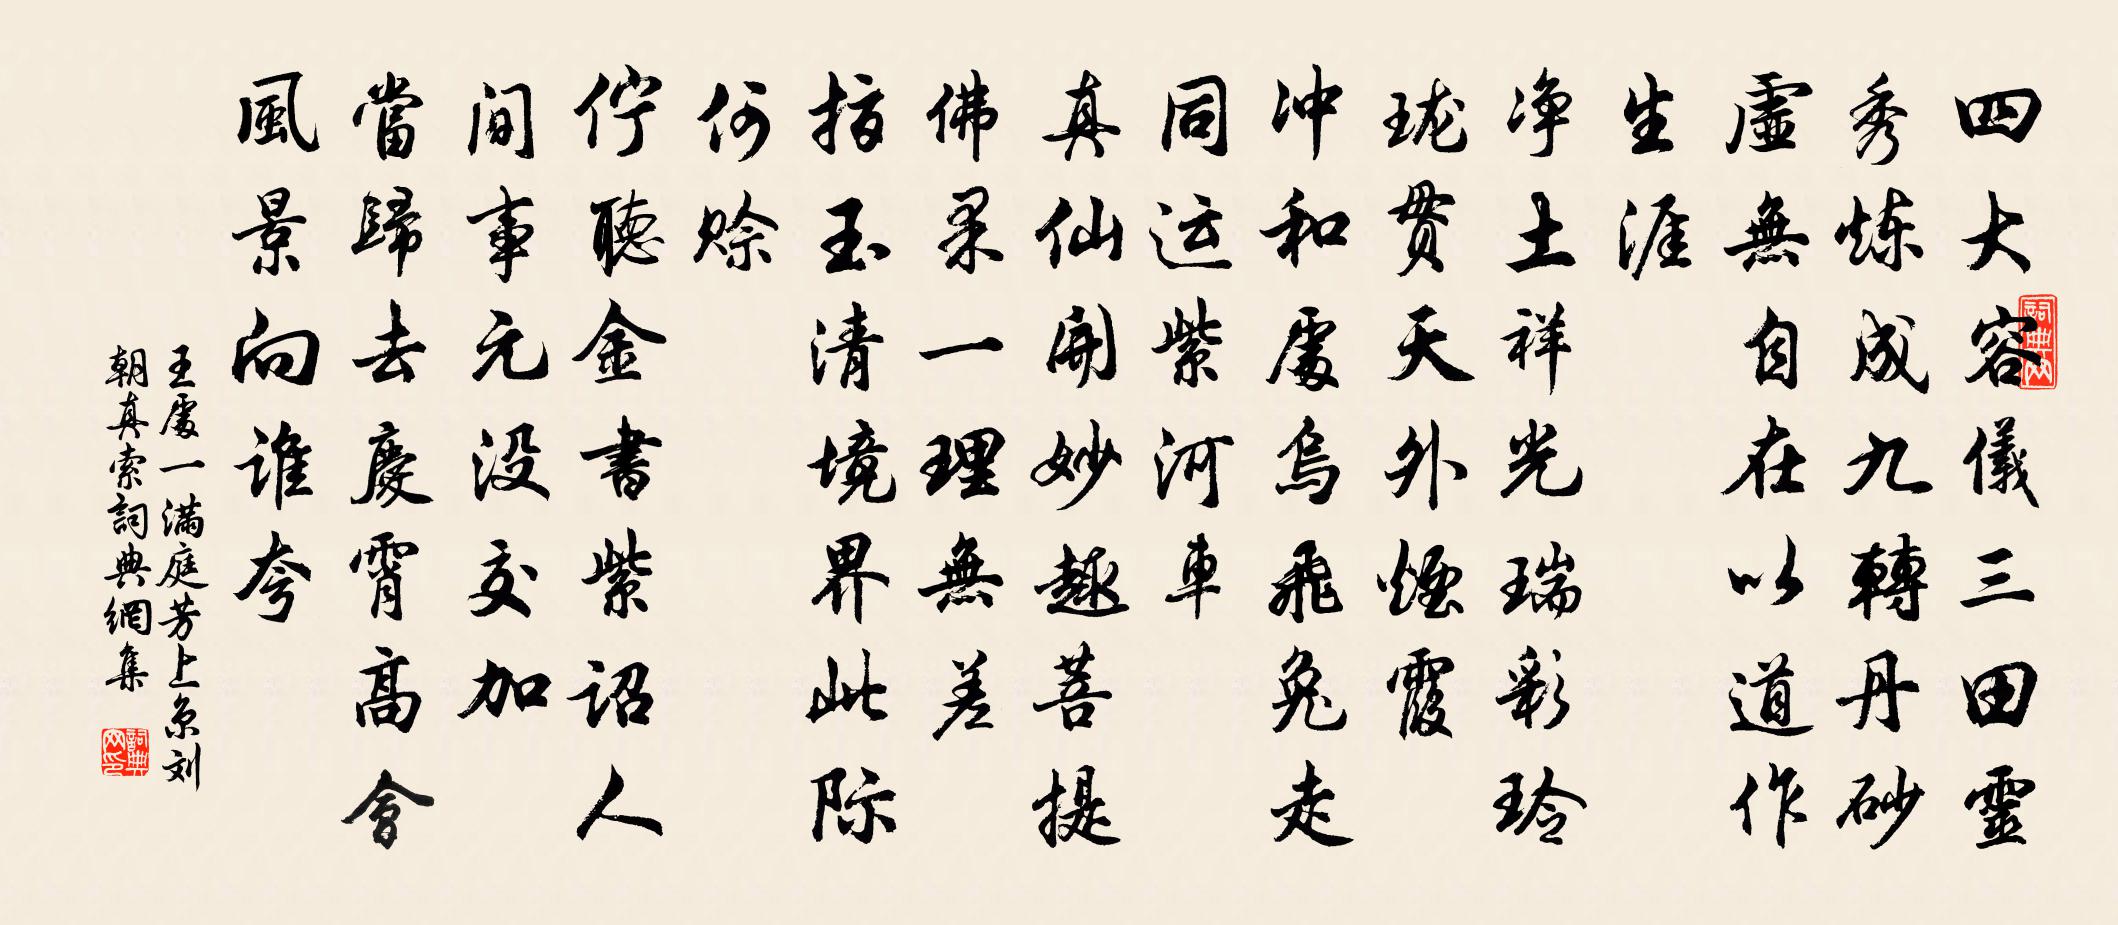 四大容儀三田靈
秀炼成九轉丹砂
虛無自在以道作
生涯
净土祥光瑞彩玲
珑贯天外煙霞
冲和處烏飛兔走
同运紫河車
真仙開妙趣菩提
佛果一理無差
指玉清境界此际
何赊
佇聽金書紫诏人
間事元没交加
當歸去慶霄高會
風景向谁夸
王處一满庭芳上京刘
朝真索詞典網集
詞典网
詞典网印